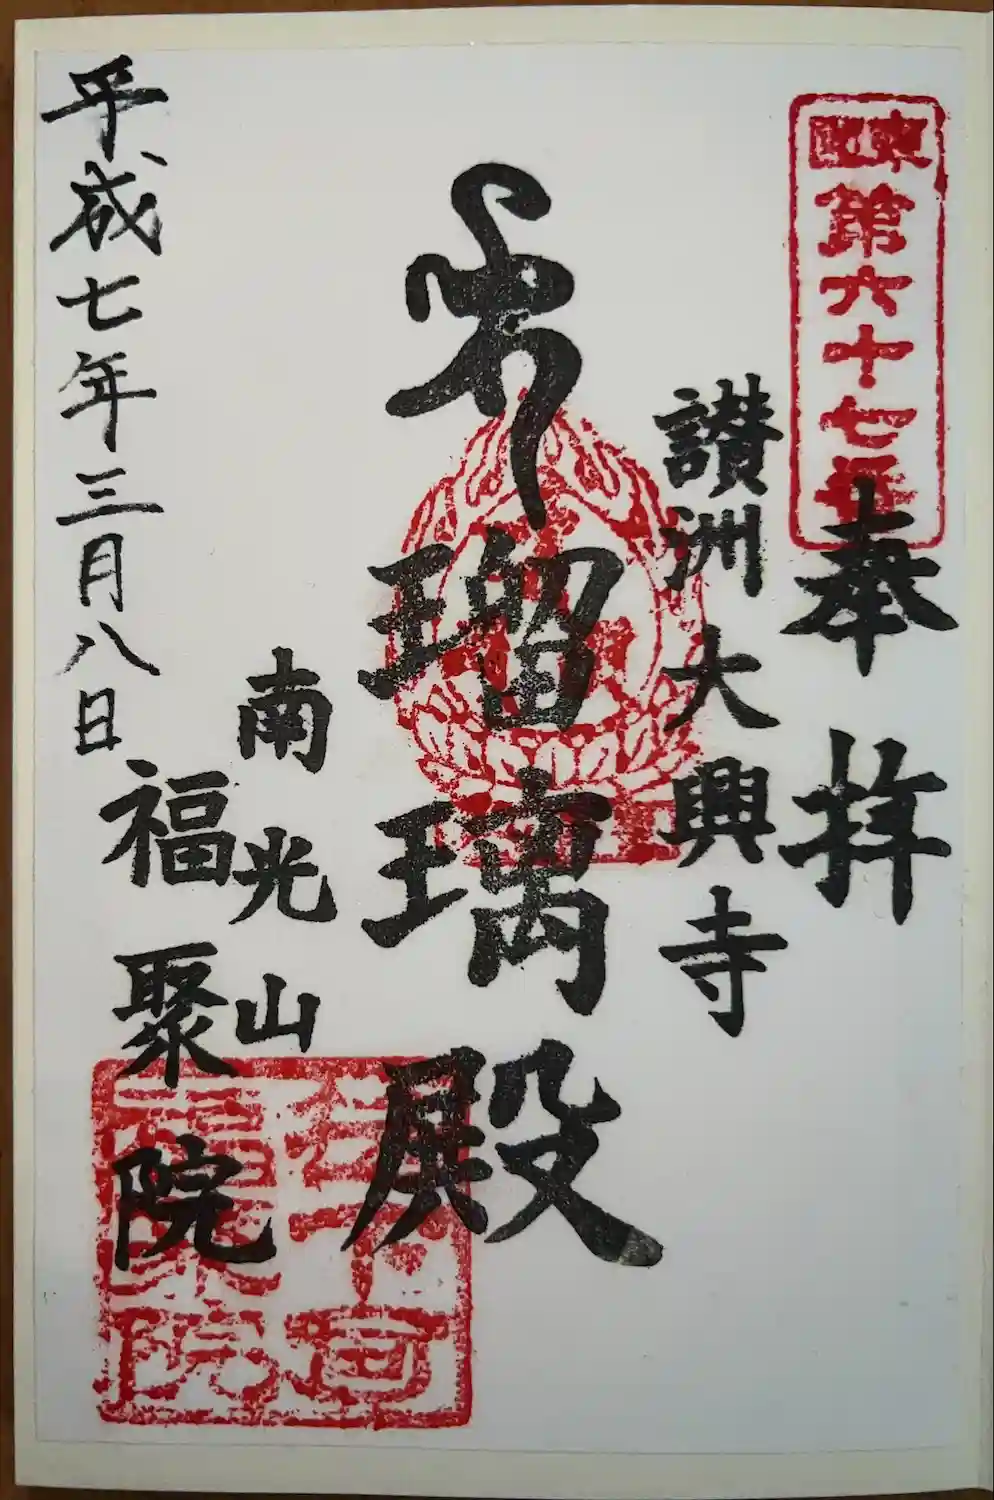 第六十七番
奉拝
讃洲大興寺
瑠璃殿
南光山
福聚院
平成七年三月八日